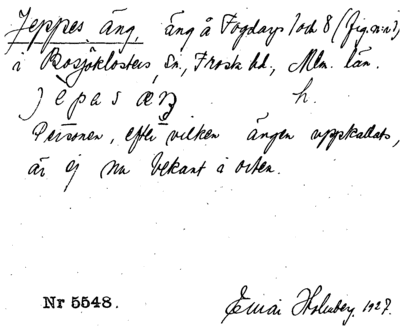 Jeppes äng, äng å Fogdarp 1 och 8 (fig. n:r 1)
i Bosjöklosters sn., Frosta hd., Mlm. län.
jèpas æŋ h.
Personen, efter vilken ängen uppkallats,
är ej nu bekant i orten.
Nr 5548. Ewai Holmberg. 1927.